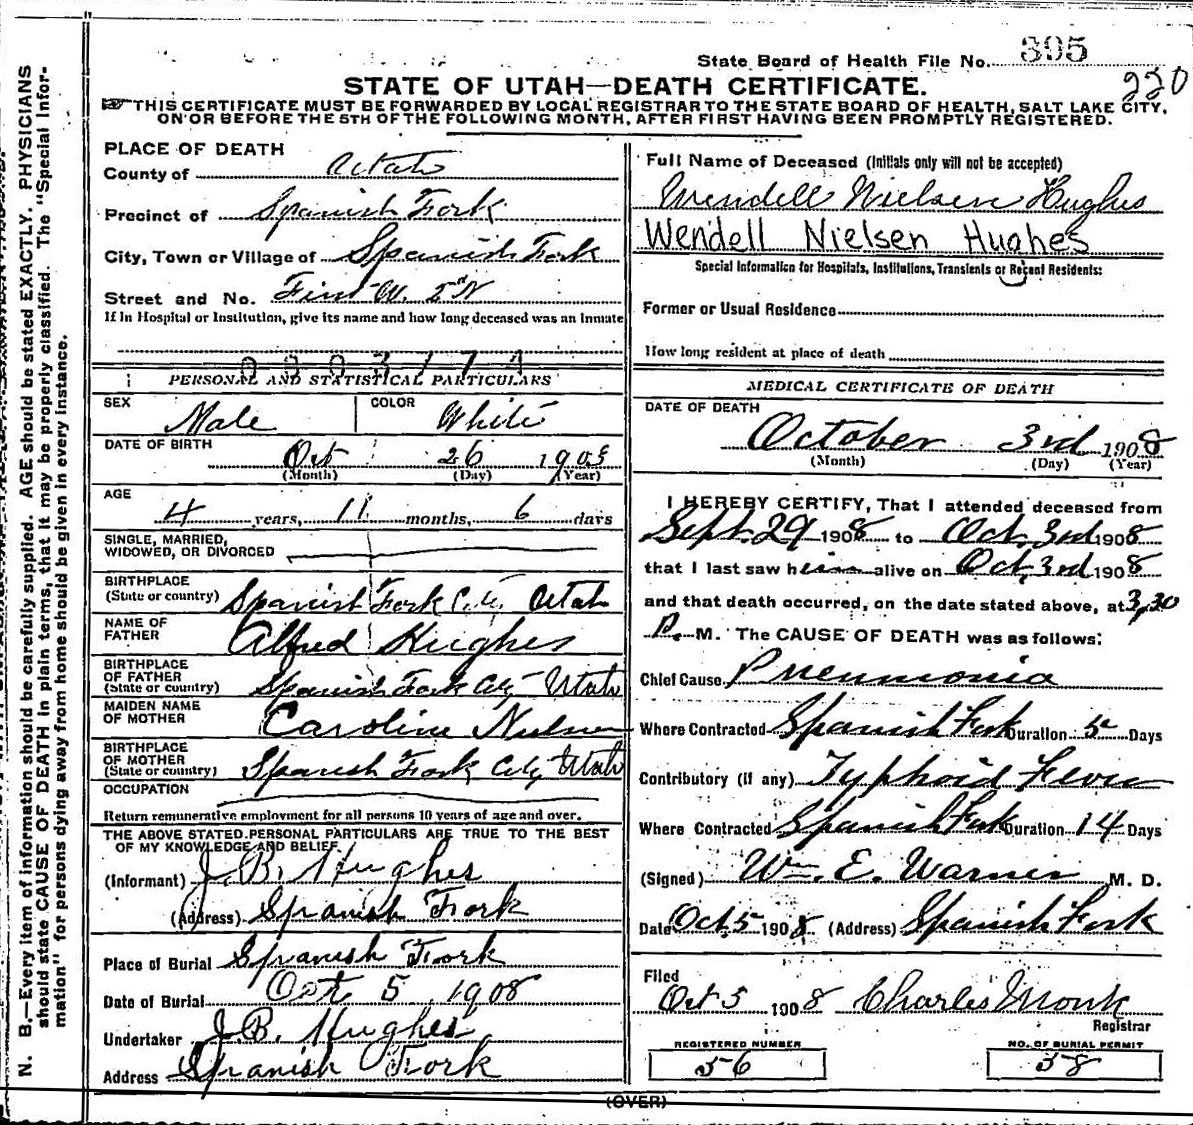 State Board of Health File No. 395
220
STATE OF UTAH—DEATH CERTIFICATE.
THIS CERTIFICATE MUST BE FORWARDED BY LOCAL REGISTRAR TO THE STATE BOARD OF HEALTH, SALT LAKE CITY,
ON OR BEFORE THE 5TH OF THE FOLLOWING MONTH, AFTER FIRST HAVING BEEN PROMPTLY REGISTERED.
N. B.—Every item of information should be carefully supplied. AGE should be stated EXACTLY. PHYSICIANS
should state CAUSE OF DEATH in plain terms, that it may be properly classified. The "Special Infor-
mation" for persons dying away from home should be given in every instance.
PLACE OF DEATH
County of Utah
Precinct of Spanish Fork
City, Town or Village of Spanish Fork
Street and No. First W. 5" N
If in Hospital or Institution, give its name and how long deceased was an inmate
PERSONAL AND STATISTICAL PARTICULARS
SEX Male COLOR White
DATE OF BIRTH
Oct 26 1903
(Month) (Day) (Year)
AGE
4 years, 11 months, 6 days
SINGLE, MARRIED,
WIDOWED, OR DIVORCED
BIRTHPLACE
(State or country) Spanish Fork City Utah
NAME OF
FATHER Alfred Hughes
BIRTHPLACE
OF FATHER
(State or country) Spanish Fork City Utah
MAIDEN NAME
OF MOTHER Caroline Nielsen
BIRTHPLACE
OF MOTHER
(State or country) Spanish Fork City Utah
OCCUPATION
Return remunerative employment for all persons 10 years of age and over.
THE ABOVE STATED PERSONAL PARTICULARS ARE TRUE TO THE BEST
OF MY KNOWLEDGE AND BELIEF
(Informant) J. B. Hughes
(Address) Spanish Fork
Place of Burial Spanish Fork
Date of Burial Oct 5, 1908
Undertaker J. B. Hughes
Address Spanish Fork
Full Name of Deceased (Initials only will not be accepted)
Wendell Nielsen Hughes
Wendell Nielsen Hughes
Special Information for Hospitals, Institutions, Transients or Recent Residents:
Former or Usual Residence
How long resident at place of death
MEDICAL CERTIFICATE OF DEATH
DATE OF DEATH
October 3rd 1908
(Month) (Day) (Year)
I HEREBY CERTIFY, That I attended deceased from
Sept. 29 1908 to Oct. 3rd 1908
that I last saw him alive on Oct, 3rd 1908
and that death occurred, on the date stated above, at 3,30
P. M. The CAUSE OF DEATH was as follows:
Chief Cause Pneumonia
Where Contracted Spanish Fork Duration 5 Days
Contributory (if any) Typhoid Fever
Where Contracted Spanish Fork Duration 14 Days
(Signed) Wm. E. Warner M. D.
Date Oct. 5 1908. (Address) Spanish Fork
Filed
Oct 5 1908 Charles Monk
Registrar
REGISTERED NUMBER
56
NO. OF BURIAL PERMIT
38
(OVER)